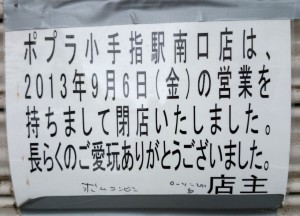 ポプラ小手指駅南口店は、
2013年9月6日(金)の営業を
持ちまして閉店いたしました。
長らくのご愛玩ありがとうございました。
店主